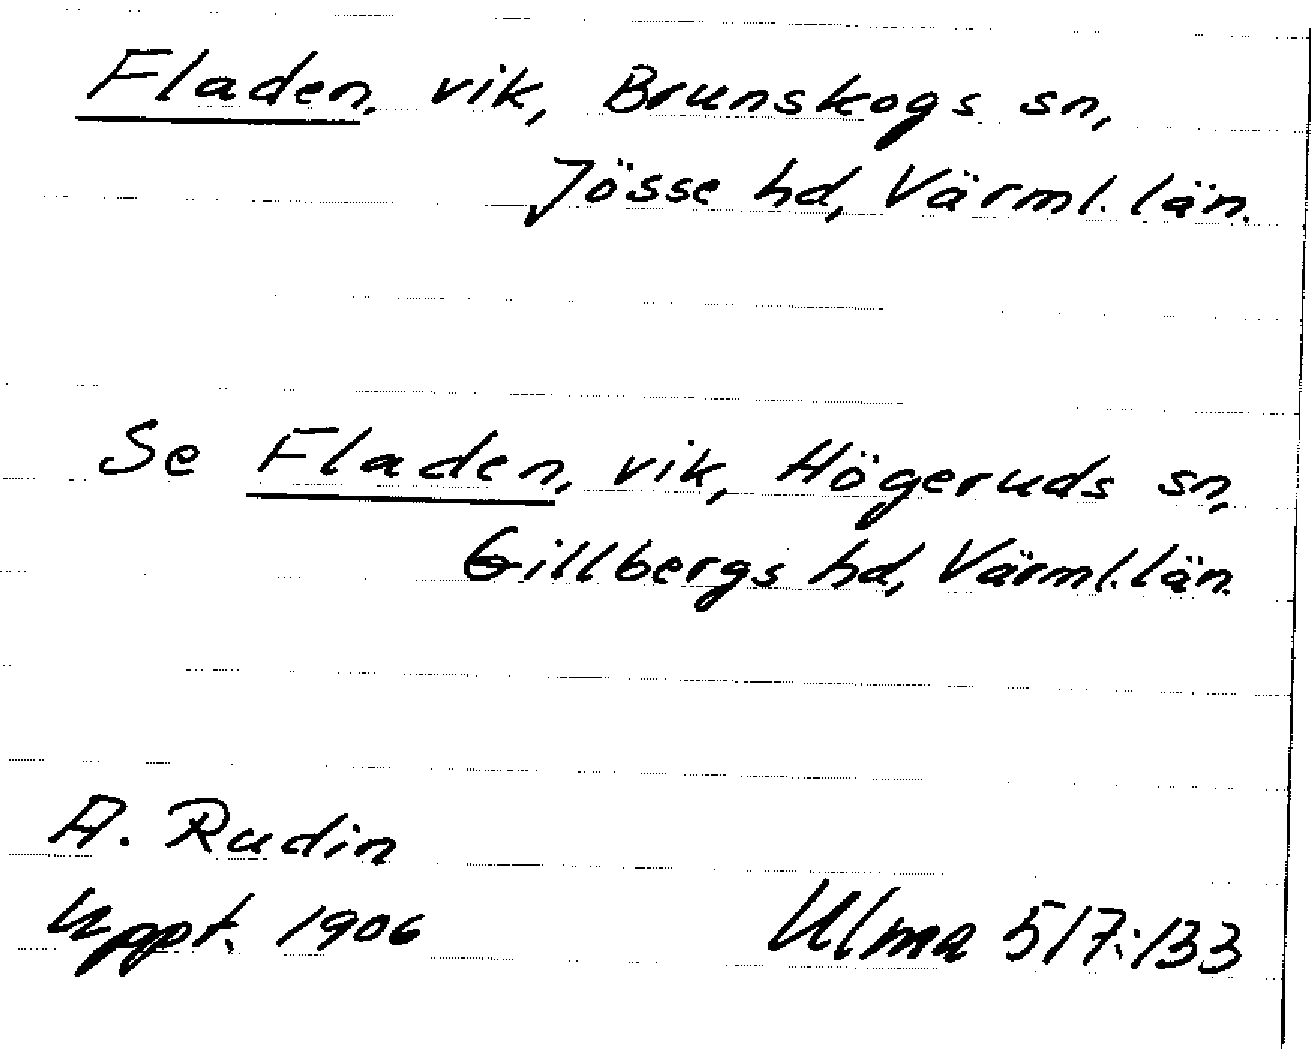 Fladen, vik, Brunskogs sn,
Jösse hd, Värml. län.
Se Fladen, vik, Högeruds sn,
Gillbergs hd, Värml. län.
A. Rudin
Uppt. 1906
Ulma 517:133